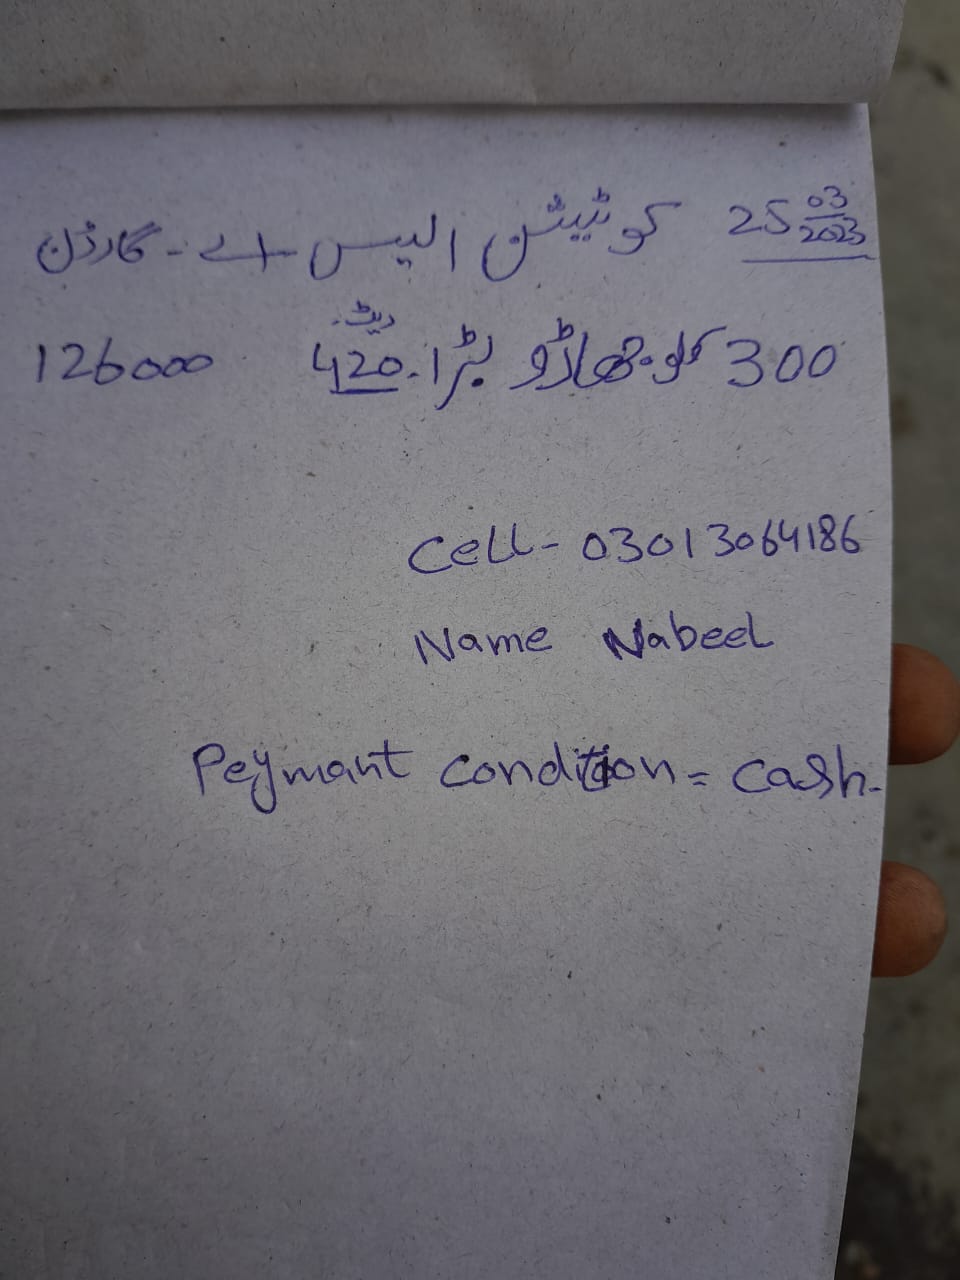 25 03/2023 کوٹیشن ایس اے - گارڈن
ریٹ
300 کلو جھاڑو بڑا . 420 126000
Cell - 03013064186
Name Nabeel
Peymant condition = cash.